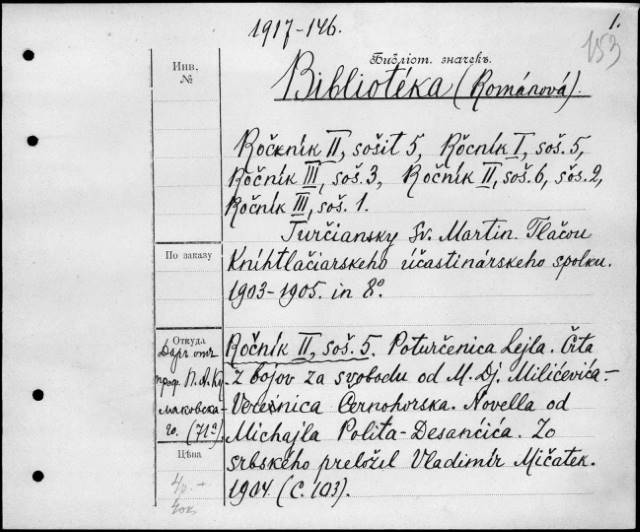 1917-146.
1.
153
Инв.
№
Библіот. значекъ.
Bibliotéka (Románová).
Ročkník II, sošit 5, Ročník I, soš. 5,
Ročník III, soš. 3, Ročník II, soš. 6, soš. 2,
Ročník III, soš. 1.
Turčiansky Sv. Martin. Tlačou
По заказу
Kníhtlačiarskeho účastinárskeho spolku.
1903-1905. in 8°.
Откуда
Даръ отъ
проф. П. А. Ку
лаковска-
го. (71а)
Ročník II, soš. 5. Poturčenica Lejla. Črta
z bojov za svobodu od M. Dj. Milićevića –
Verešnica Černohorska. Novella od
Michajla Polita-Desančića. Zo
Цѣна
srbského preložil Vladimír Mičátek.
1904 (C. 103).